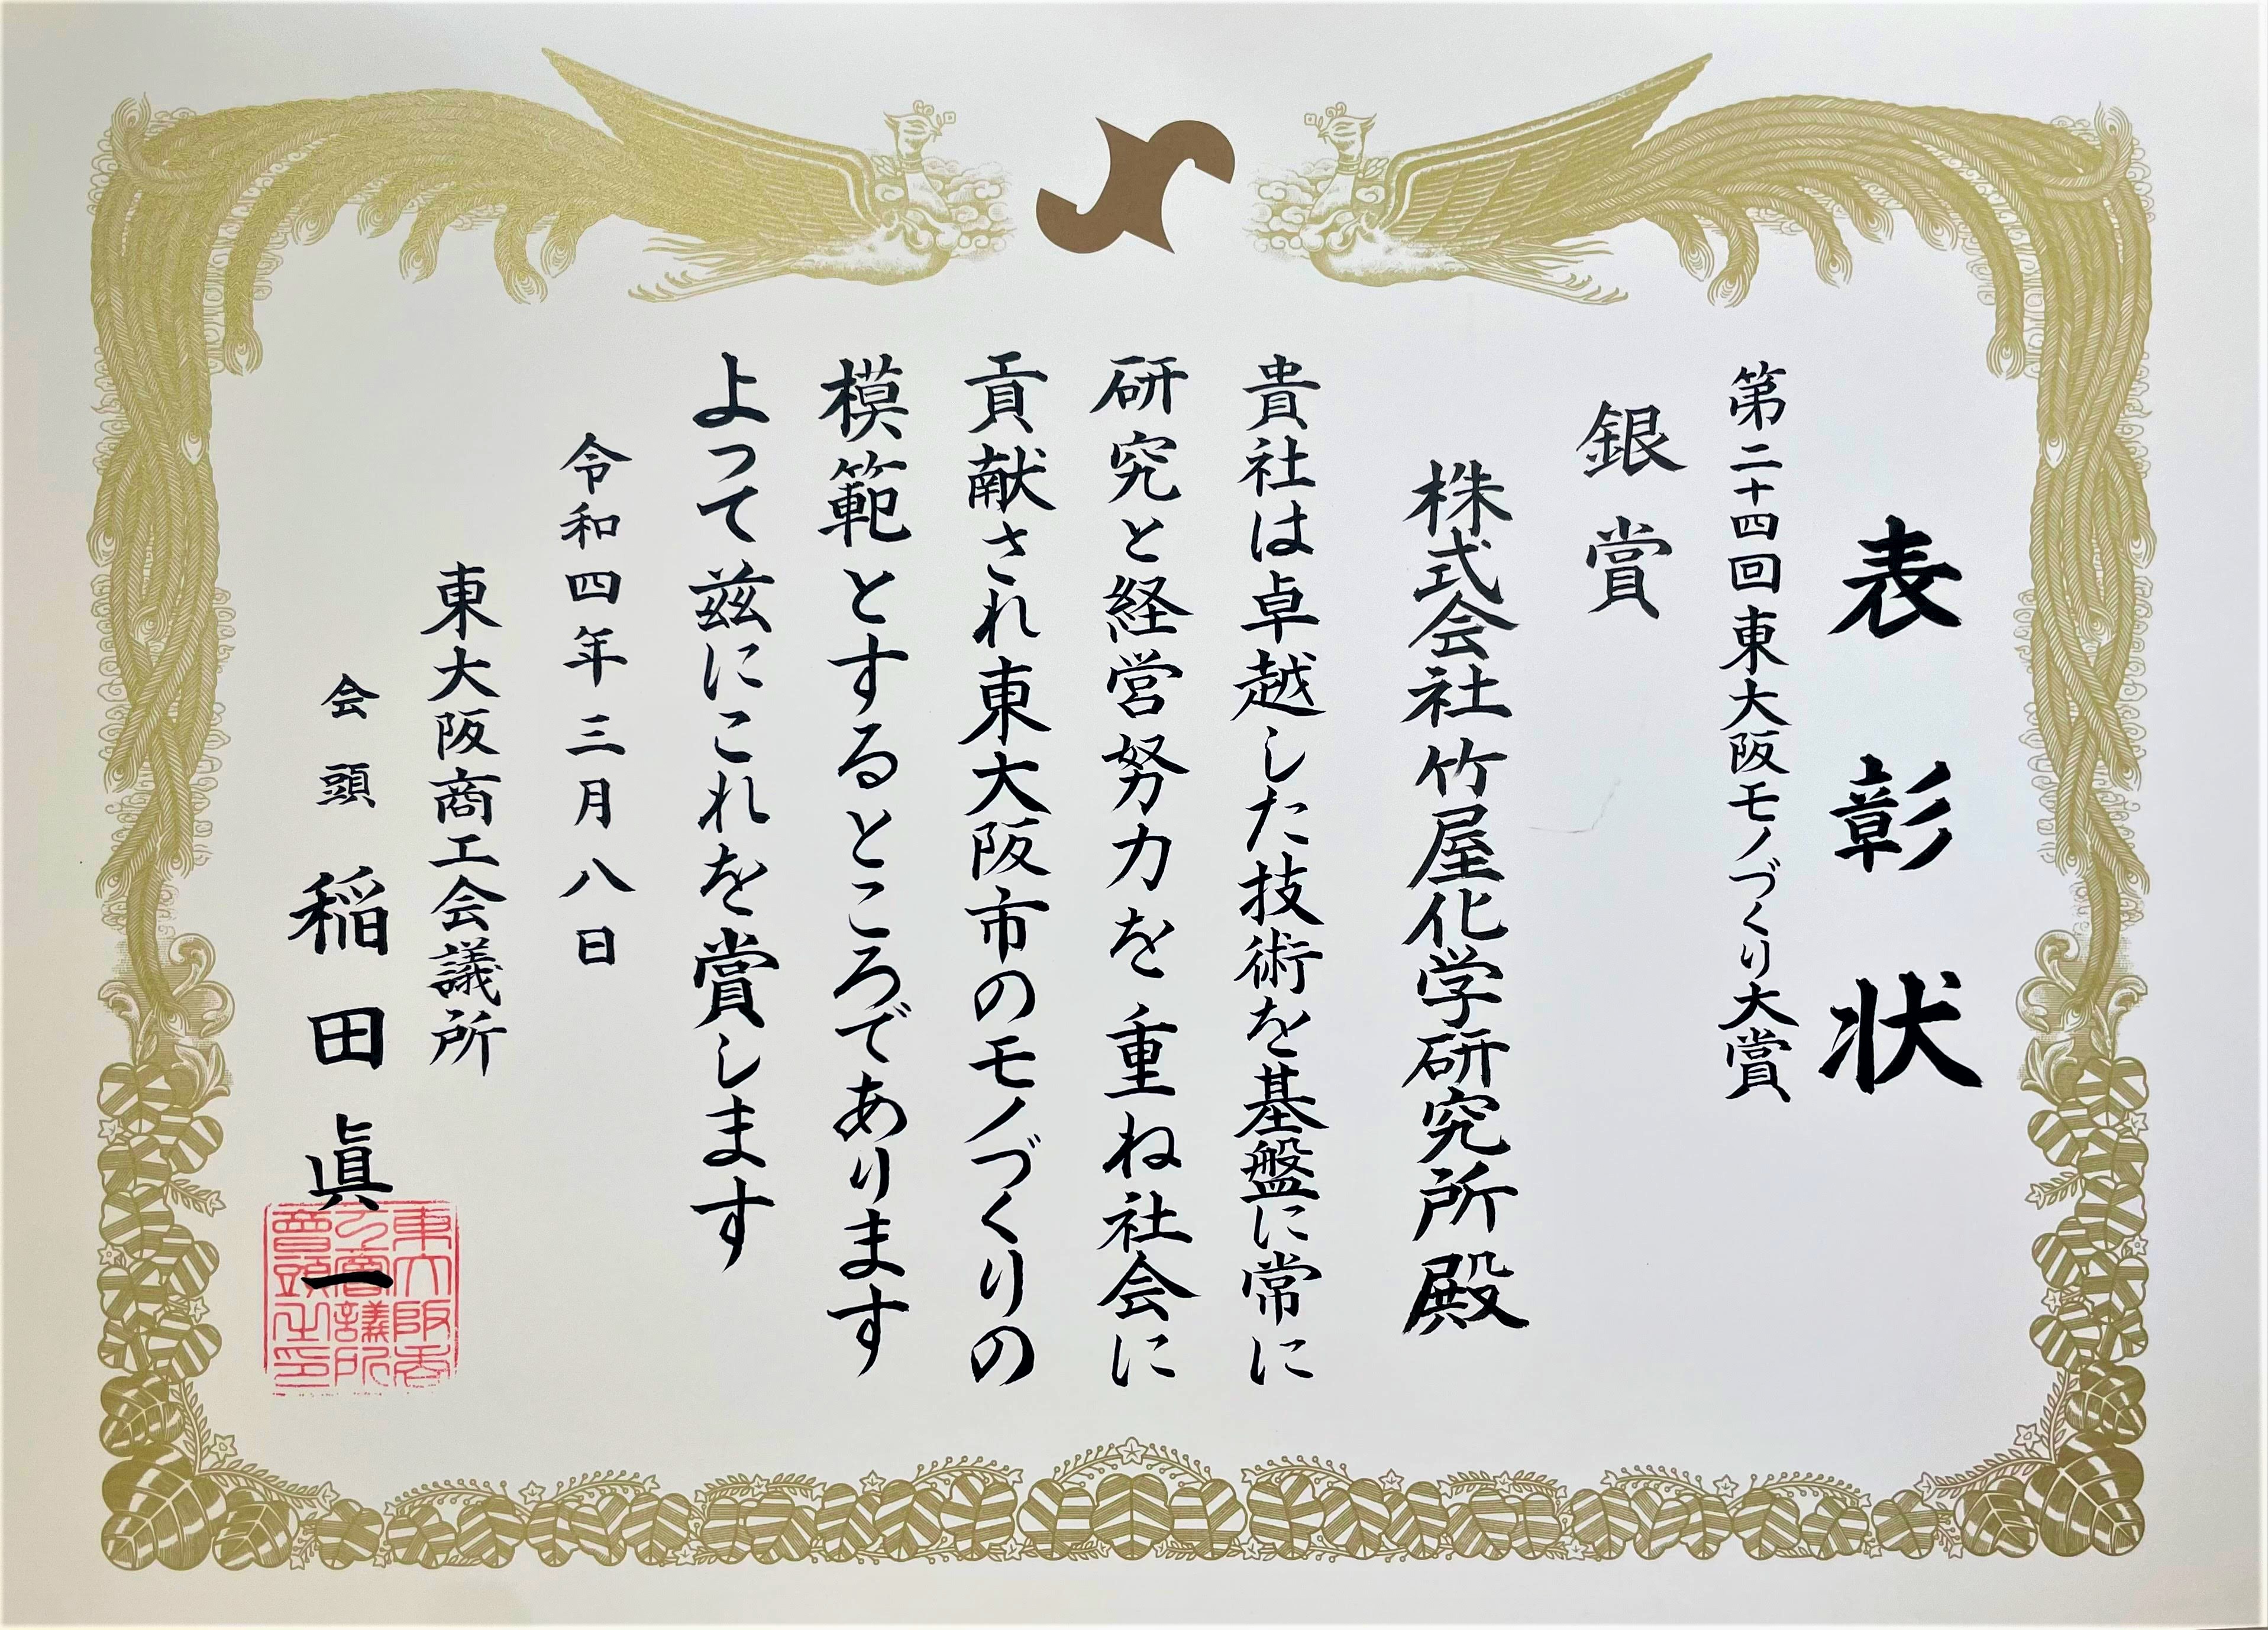 表彰状
第二十四回東大阪モノづくり大賞
銀賞
株式会社竹屋化学研究所殿
貴社は卓越した技術を基盤に常に
研究と経営努力を重ね社会に
貢献され東大阪市のモノづくりの
模範とするところであります
よって茲にこれを賞します
令和四年三月八日
東大阪商工会議所
会頭 稲田眞一
東大阪商
工會議所
會頭之印